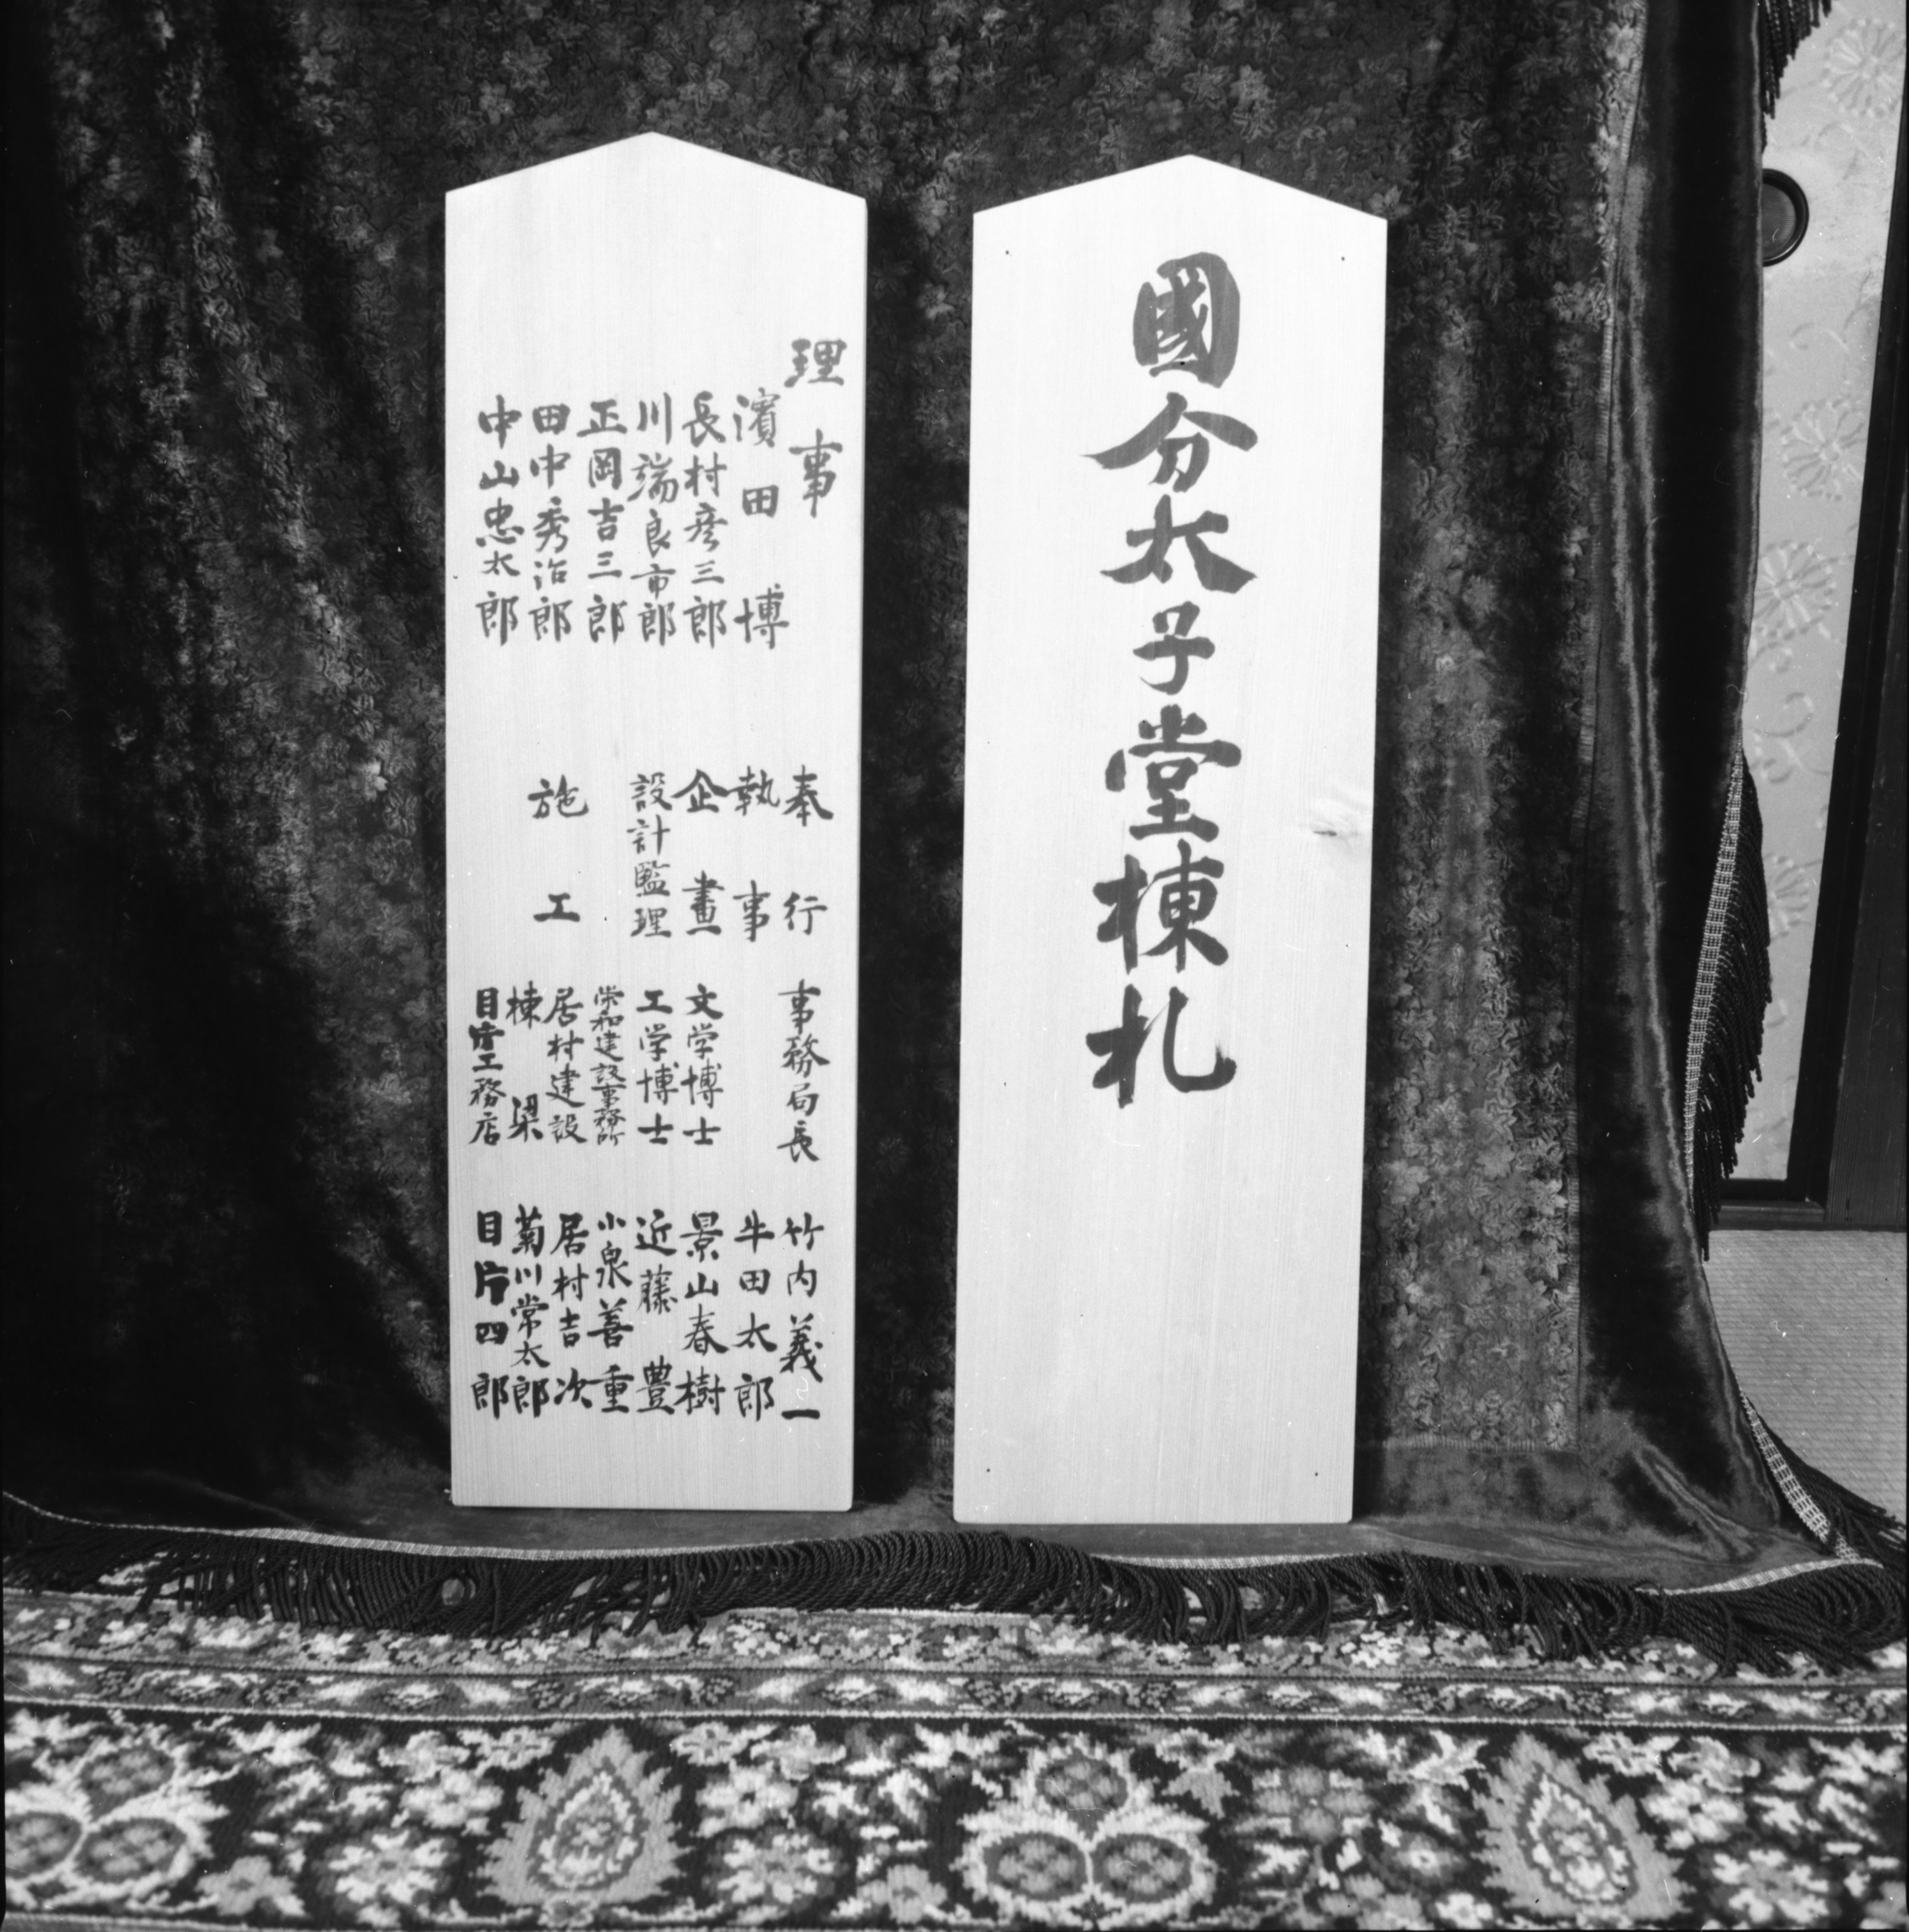 國分太子堂棟札
理事
濱田博
長村彦三郎
川端良市郎
正岡吉三郎
田中秀治郎
中山忠太郎
奉行 事務局長 竹内義一
執事 牛田太郎
企畫 文学博士 景山春樹
設計監理 工学博士 近藤豊
和建設事務所 小泉善重
施工 居村建設 居村吉次
棟梁 菊川常太郎
工務店 四郎